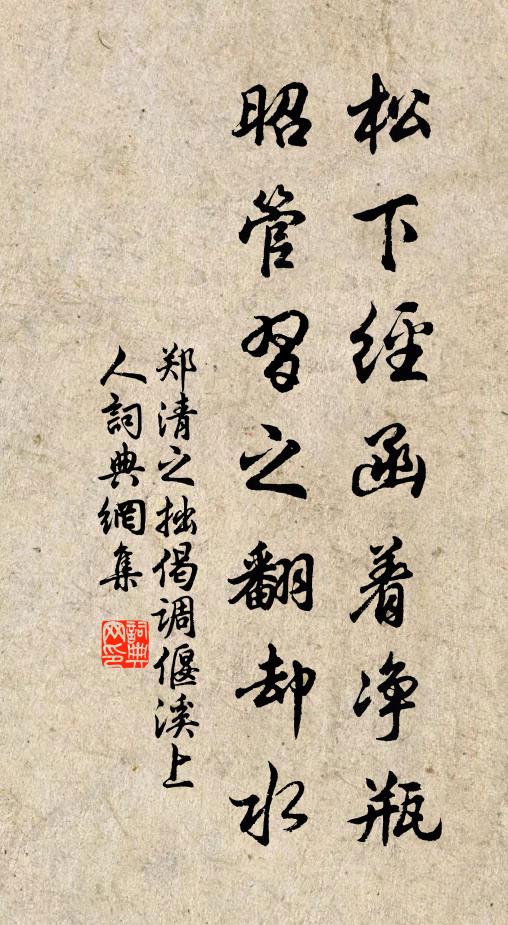 松下經函着净瓶
昭管習之翻却水
郑清之拙偈调偃溪上
人詞典網集
詞典
网印